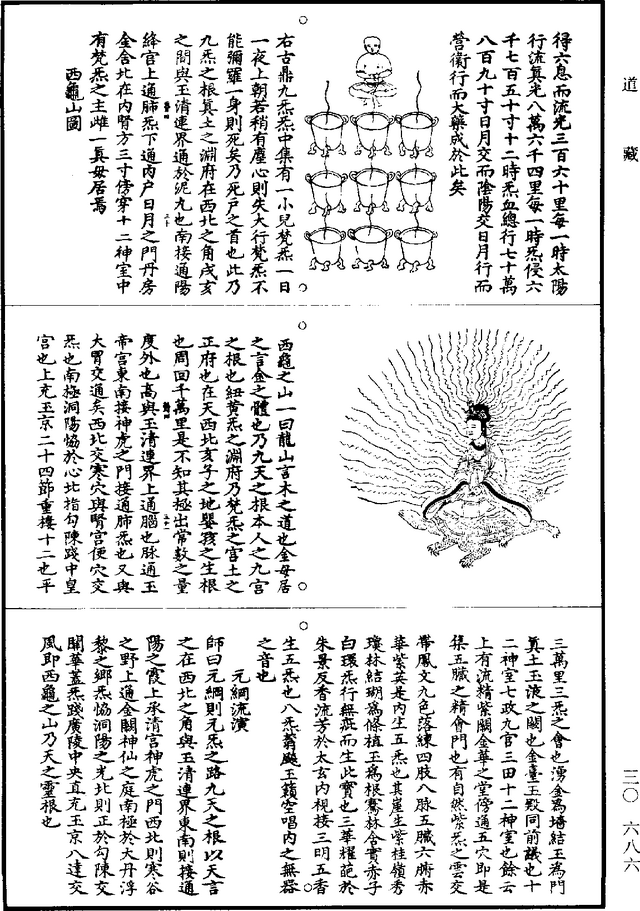 道藏
三〇·六八六
得六息而流光三百六十里每一時太陽
行流真光八萬六千四里每一時炁侵六
千七百五十寸十二時炁血總行七十萬
八百九十寸日月交而陰陽交日月行而
營衛行而大藥成於此矣
右古鼎九炁炁中集有一小兒梵炁一日
一夜上朝若稍有塵心則失大行梵炁不
能彌羅一身則死矣乃死戶之首也此乃
九炁之根真土之淵府在西北之角戌亥
之間與玉清連界通於泥九也南接通陽
絳宮上通肺炁下通內戶日月之門丹房
金舍北在內腎方三寸傍穿十二神室中
有梵炁之主雌一真母居焉
西龜山圖
西龜之山一曰龍山言木之道也金母居
之言金之體也乃九天之根本人之九宮
之根也紐黃炁之淵府乃梵炁之宮土之
正府也在天西北亥子之地嬰孩之生根
也周回千萬里是不知其極出常數之量
度外也高與玉清連界上通腦也脉通玉
帝宮東南接神虎之門接通肺炁也又與
大胃交通矣西北交寒穴與腎宮便穴交
炁也南極洞陽恊於心北指勾陳踐中皇
宮也上充玉京二十四節重樓十二也平
三萬里三炁之會也湧金為墻結玉為門
真土玉液之闕也金臺玉殿同前議也十
二神室七政九宮三田十二神室也餘云
上有流精紫闕金華之堂傍通五穴即是
集五臟之精會門也有自然紫炁之雲交
帶鳳文九色落練四肢八脉五臟六腑赤
華紫英是內生五炁也其崖生紫桂嶺秀
瓊林結瑚為條植玉為根騫林含實赤子
白環炁行無疵而生此寶也三華耀葩於
朱景反香流芳於太玄內視接三明五香
生五炁也八炁蓊颷玉籟空唱內之無器
之音也
元綱流演
師曰元綱則元炁之路九天之根以天言
之在西北之角與玉清連界東南則接通
陽之霞上承清宮神虎之門西北則寒谷
之野上通金闕神仙之庭南極於大丹浮
黎之鄉炁恊洞陽之光北則正於勾陳交
關華蓋炁踐廣陵中央直充玉京八達交
風即西龜之山乃天之靈根也